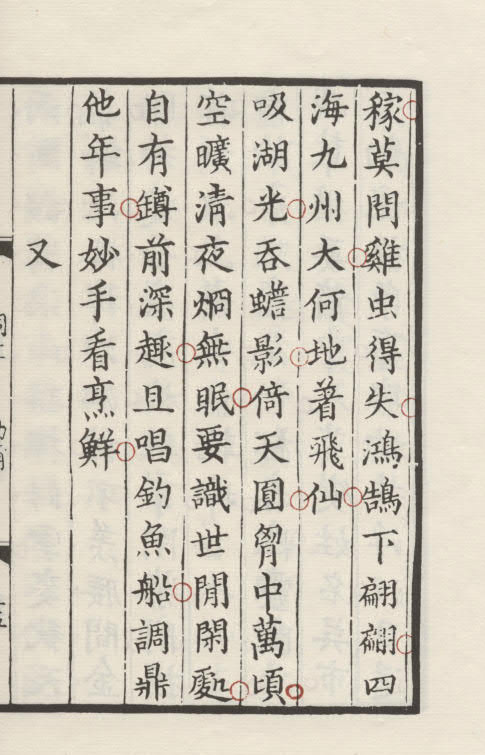 稼莫問雞虫得失鴻鵠下翩翩四
海九州大何地著飛仙
吸湖光吞蟾影倚天圓胷中萬頃
空曠清夜烱無眠要識世閒閑處
自有鐏前深趣且唱釣魚船調鼎
他年事妙手看烹鮮
又